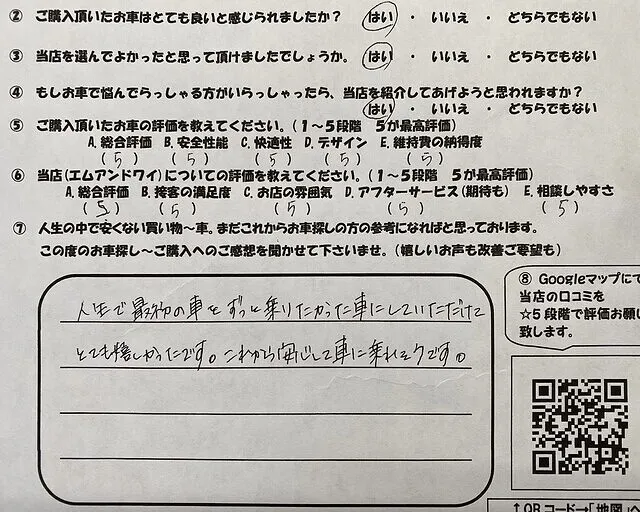 ② ご購入頂いたお車はとても良いと感じられましたか? はい ・ いいえ ・ どちらでもない
③ 当店を選んでよかったと思って頂けましたでしょうか。 はい ・ いいえ ・ どちらでもない
④ もしお車で悩んでらっしゃる方がいらっしゃったら、当店を紹介してあげようと思われますか?
はい ・ いいえ ・ どちらでもない
⑤ ご購入頂いたお車の評価を教えてください。(1~5段階 5が最高評価)
A.総合評価 B.安全性能 C.快適性 D.デザイン E.維持費の納得度
(5) (5) (5) (5) (5)
⑥ 当店(エムアンドワイ)についての評価を教えてください。(1~5段階 5が最高評価)
A.総合評価 B.接客の満足度 C.お店の雰囲気 D.アフターサービス(期待も) E.相談しやすさ
(5) (5) (5) (5) (5)
⑦ 人生の中で安くない買い物~車。まだこれからお車探しの方の参考になればと思っております。
この度のお車探し~ご購入へのご感想を聞かせて下さいませ。(嬉しいお声も改善ご要望も)
人生で最初の車をずっと乗りたかった車にしていただけて
とても嬉しかったです。これから安心して車に乗れそうです。
⑧ Googleマップにて
当店の口コミを
☆5段階で評価お願い
致します。
↑QRコード→「地図」へ